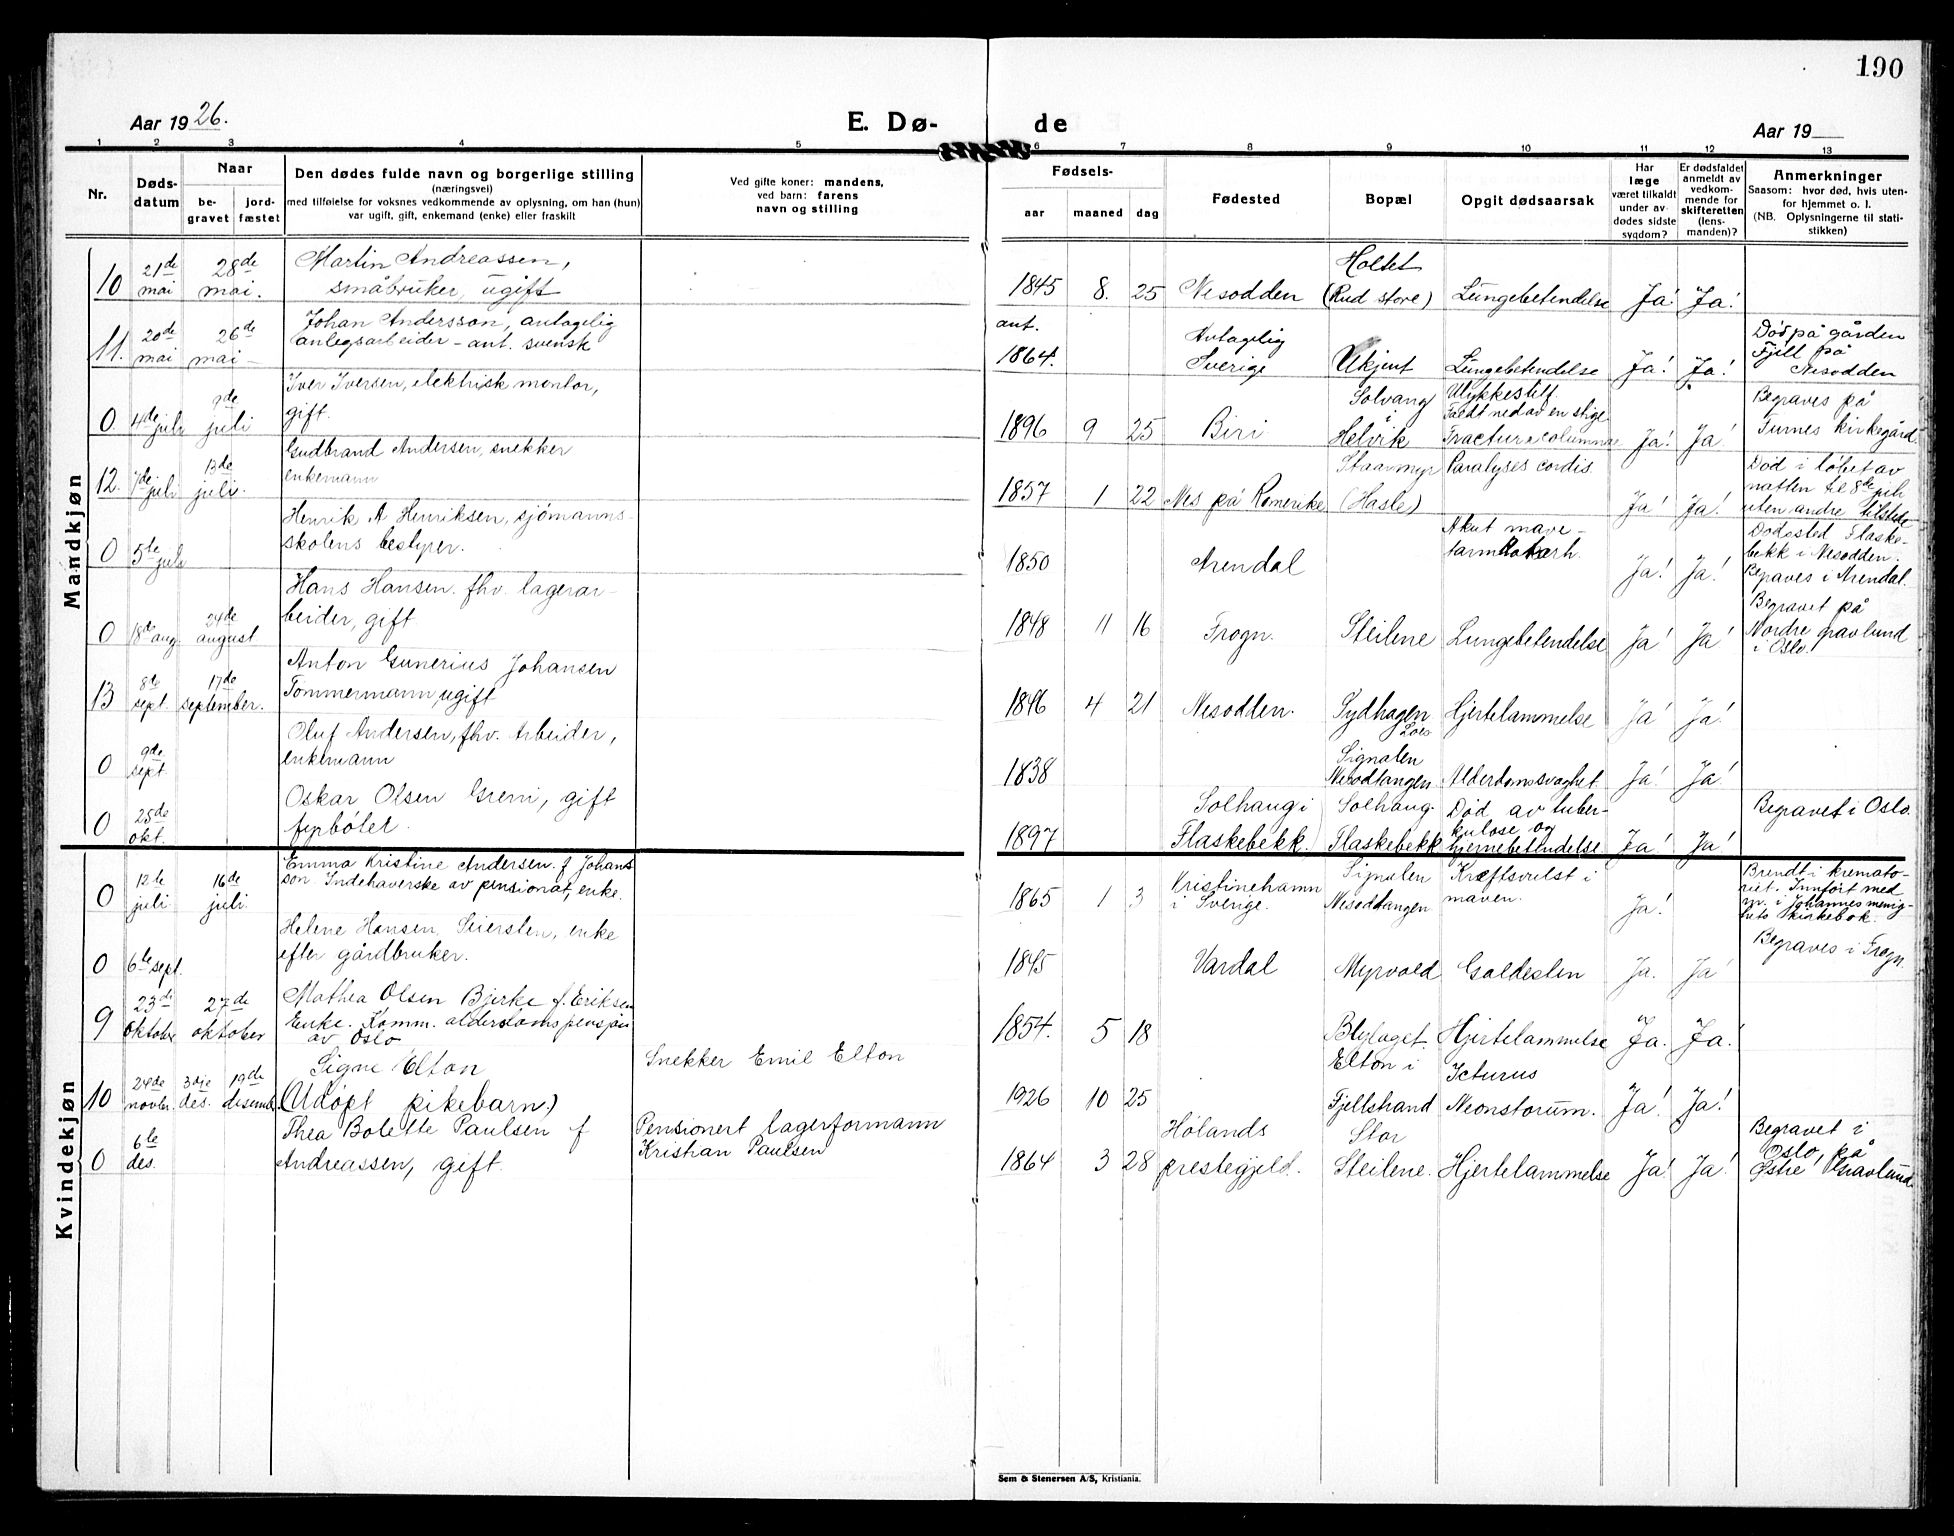 190
Aar 1926.
E. Dø-
de
Aar 19
1 2 3 4 5 6 7 8 9 10 11 12 13
Nr.
Døds-
datum
Naar
be-
gravet
jord-
fæstet
Den dødes fulde navn og borgerlige stilling
(næringsvei)
med tilføielse for voksnes vedkommende av oplysning, om han (hun)
var ugift, gift, enkemand (enke) eller fraskilt
Ved gifte koner: mandens,
ved barn: farens
navn og stilling
Fødsels-
aar maaned dag
Fødested
Bopæl
Opgit dødsaarsak
Har
læge
været tilkaldt
under av-
dødes sidste
sygdom?
Er dødsfaldet
anmeldt av
vedkom-
mende for
skifteretten
(lens-
manden)?
Anmerkninger
Saasom: hvor død, hvis uten-
for hjemmet o. l.
(NB. Oplysningerne til stati-
stikken)
Mandkjøn
10 21de mai 28de mai.
Martin Andreassen,
småbruker, ugift
1845 8. 25 Nesodden
Holtet
(Rud store)
Lungebetendelse Ja! Ja!
11. 20de mai 26de mai
Johan Andersson, antagelig
anlegsarbeider - ant. svensk
ant.
1864.
Antagelig
Sverige
Ukjent Lungebetendelse Ja! Ja!
Død på gården
Fjell på
Nesodden
0. 4de juli 9de juli
Iver Iversen, elektrisk montør,
gift.
1896 9 25 Biri
Solvang
i
Helvik
Ulykkestilf.
Faldt ned av en stige.
Fractura columnae
Ja! Ja!
Begraves på
Furnes kirkegård.
12. 7de juli 13de juli.
Gudbrand Andersen, snekker
enkemann
1857 1 22 Nes på Romerike
Staarmyr
(Hasle)
Paralyses cordis
Ja! Ja!
Død i løbet av
natten til 8de juli
uten andre tilstede
0 5te juli
Henrik A Henriksen, sjömanns-
skolens bestyrer.
1850 Arendal
Akut mave-
tarmkatarh.
Ja! Ja!
Dødssted Flaske-
bekk i Nesodden.
Begraves i Arendal.
0 18de aug. 24de august
Hans Hansen. fhv. lagerar-
beider, gift
1848 11 16 Frogn. Steilene Lungebetendelse Ja! Ja!
Begravet på
Nordre gravlund
i Oslo.
13 8de sept. 17de september.
Anton Gunerius Johansen
Tømmermann, ugift
1846 4 21 Nesodden. Sydhagen Hjertelammelse Ja! Ja!
0 9de sept.
Oluf Andersen, fhv. Arbeider,
enkemann
1838
Signalen
Nesodtangen Alderdomssvaghet Ja! Ja!
0 25de okt.
Oskar Olsen Greni, gift
fyrbøter.
1897
Solhaug i
Flaskebekk.
Solhaug.
Flaskebekk
Død av tuber-
kulose og
hjernebetendelse
Ja! Ja!
Begravet i Oslo.
Kvindekjøn
0 12te juli 16de juli
Emma Kristine Andersen. f. Johans
son. Indehaverske av pensionat, enke.
1865 1 3
Kristinehamn
i Sverige.
Signalen
Nesodtangen
Kræftsvulst i
maven.
Ja!
Brendt i kremato-
riet. Innført med
nr. i Johannes menig-
hets kirkebok.
0 6te sept.
Helene Hansen, Seiersten, enke
efter gårdbruker.
1845 Vardal Myrvold Galdesten Ja. Ja
Begraves i Frogn.
9 23de oktober 27de oktober
Mathea Olsen Bjerke f. Eriksen
Enke. Komm. alderdomspensjon
av Oslo
1854. 5 18 Blylaget. Hjertelammelse Ja. Ja!
10 24de novbr. 3dje des. 19de desember
Signe Elton
(Adopt pikebarn.)
Snekker Emil Elton
1926 10 25
Elton i
Fjellstrand
Icturus
Neonstorum. Ja! Ja!
0 6te des.
Thea Bolette Paulsen f
Andreassen, gift.
Pensionert lagerformann
Kristian Paulsen
1864 3 28
Hölands
prestegjeld.
Stor
Steilene. Hjertelammelse Ja! Ja!
Begravet i
Oslo på
Østre Gravlund.
Sem & Stenersen A/S, Kristiania.